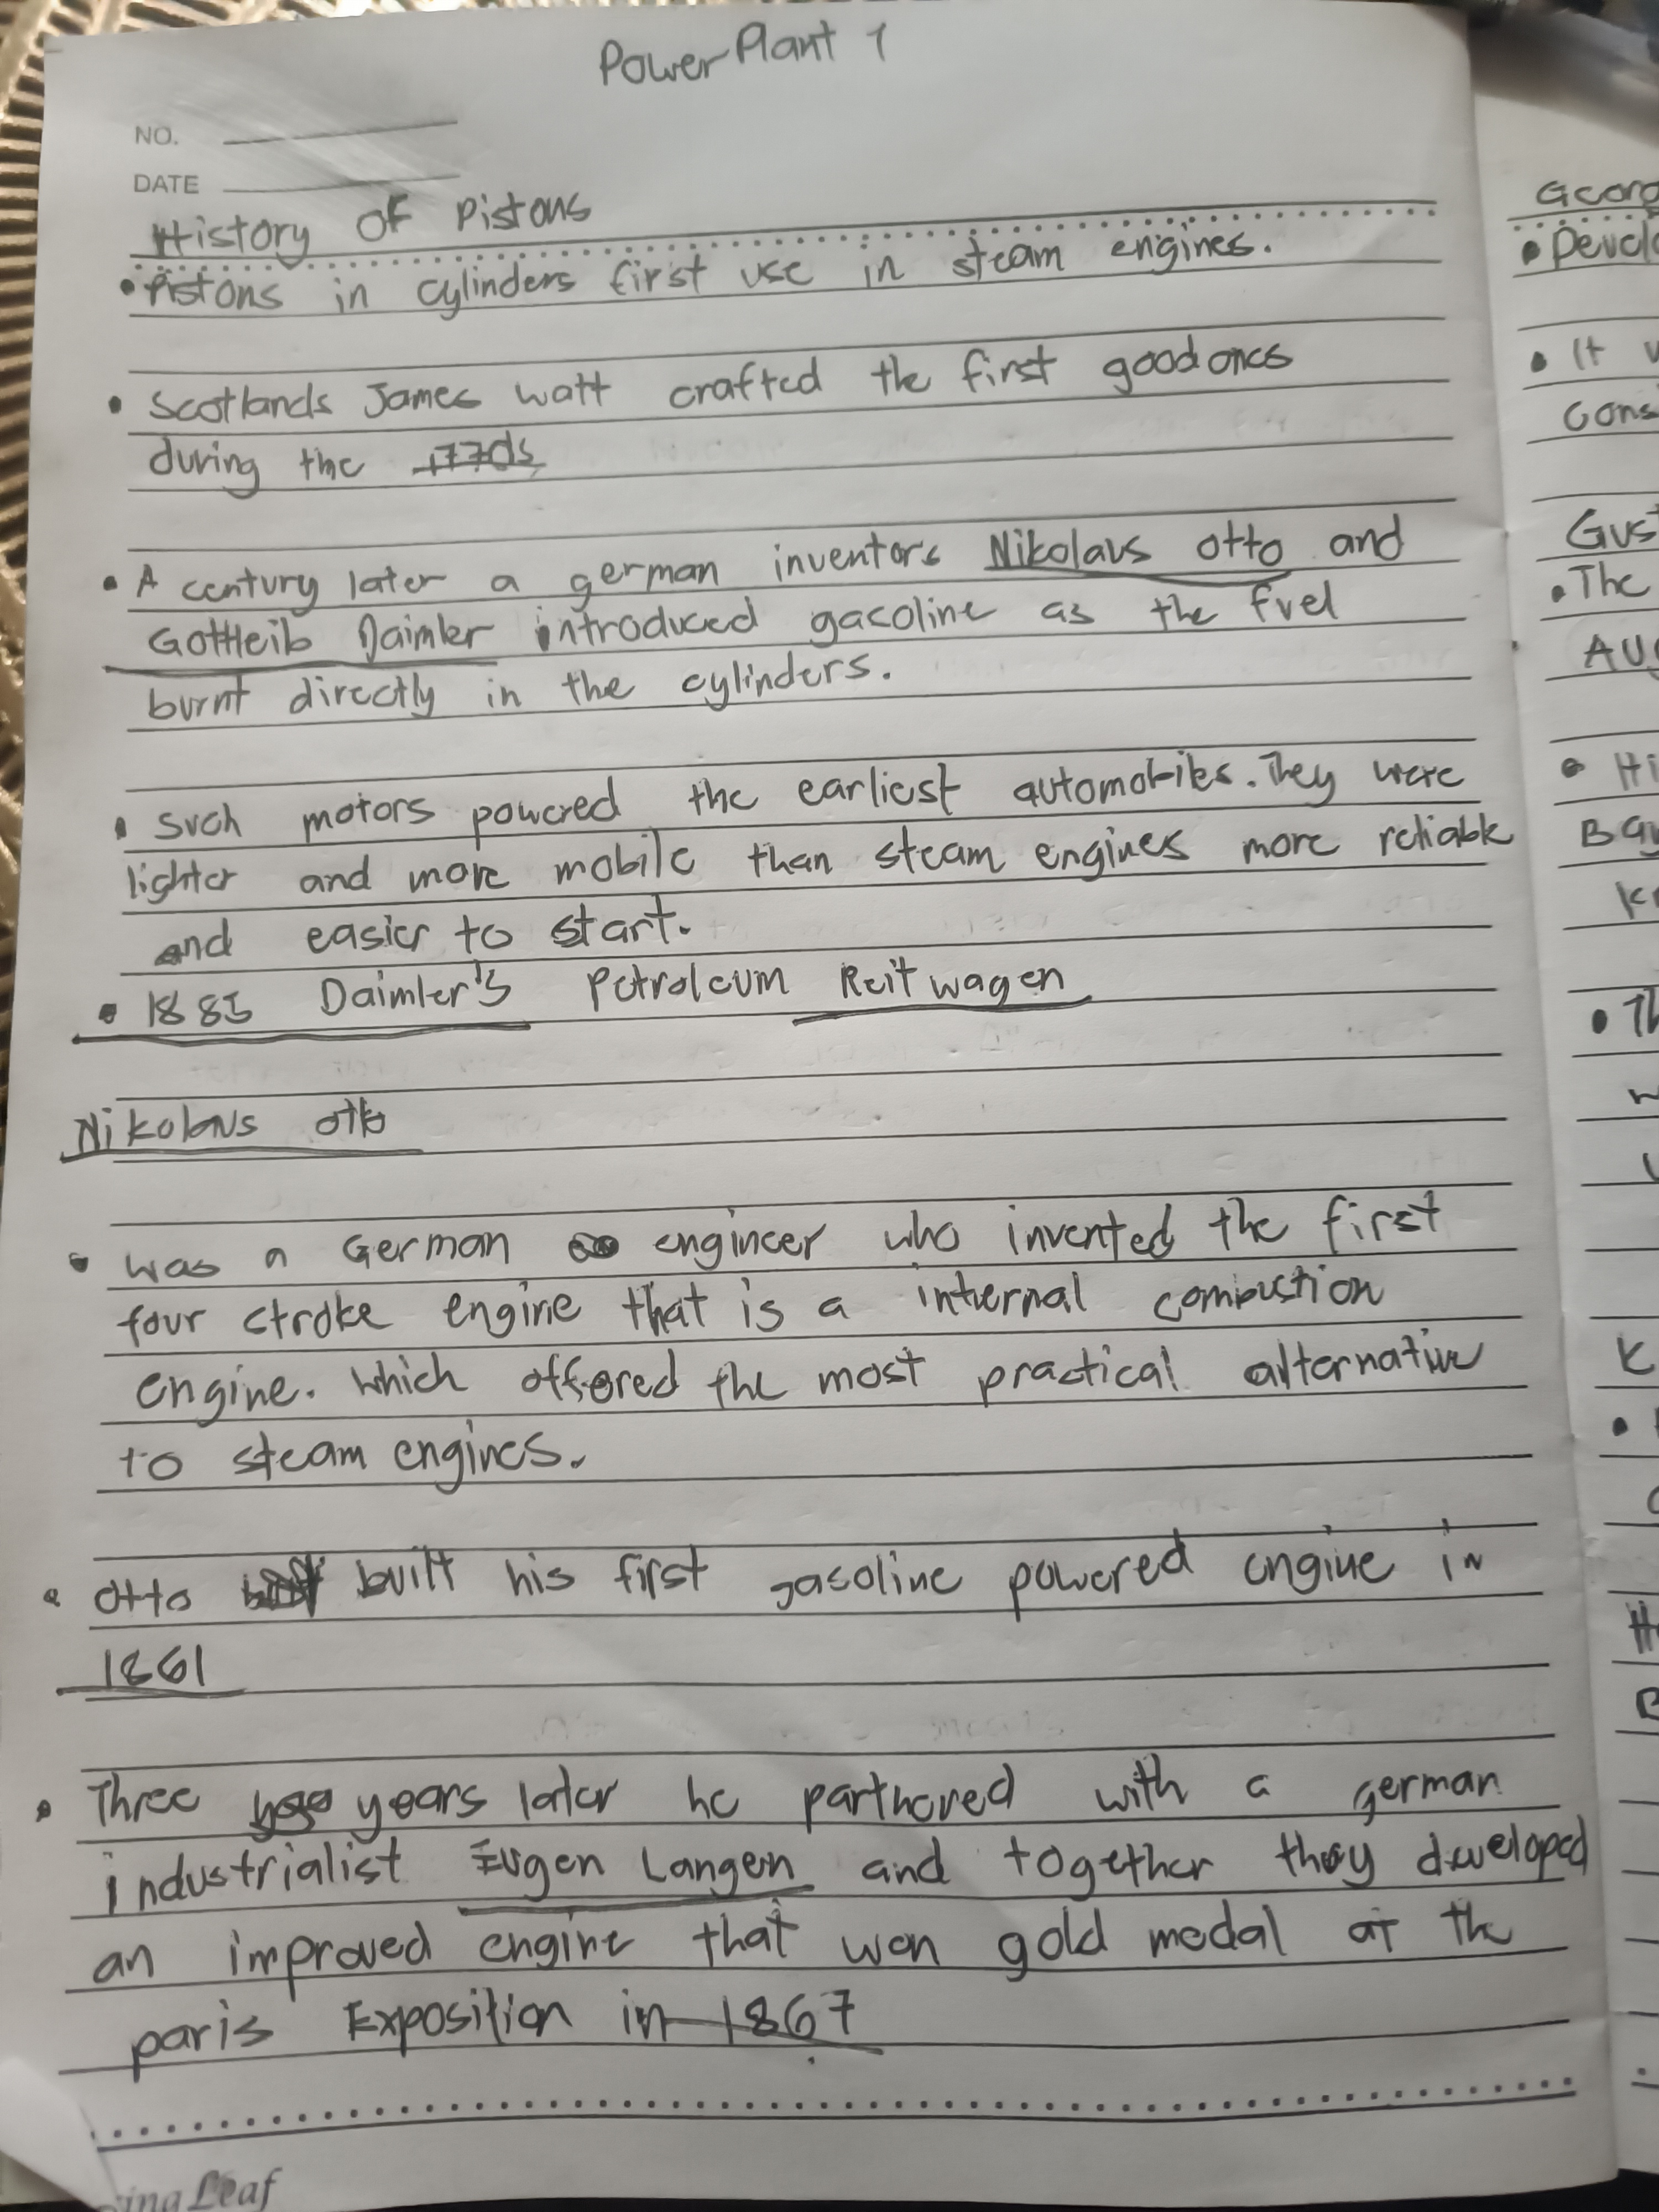 Power Plant 1
NO.
DATE
History OF Pistons
• Pistons in cylinders first use in steam engines.
• Scotlands James watt crafted the first good ones
during the 177ds
• A century later a german inventors Nikolaus otto and
Gottleib Daimler introduced gasoline as the fuel
burnt directly in the cylinders.
• such motors powered the earliest automobiles. They were
lighter and more mobile than steam engines more reliable
and easier to start.
• 1885 Daimler's Petroleum Reitwagen
Nikolaus otto
• was a German engineer who invented the first
four stroke engine that is a internal combustion
engine. which offered the most practical alternative
to steam engines.
• otto built his first gasoline powered engine in
1861
• Three years later he parthered with a german
industrialist Eugen Langen and together they developed
an improved engine that won gold medal at the
paris Exposition in 1867
Leaf
• Develo
• It
cons
Gus
• The
AUG
• Hi
• Th
K
•